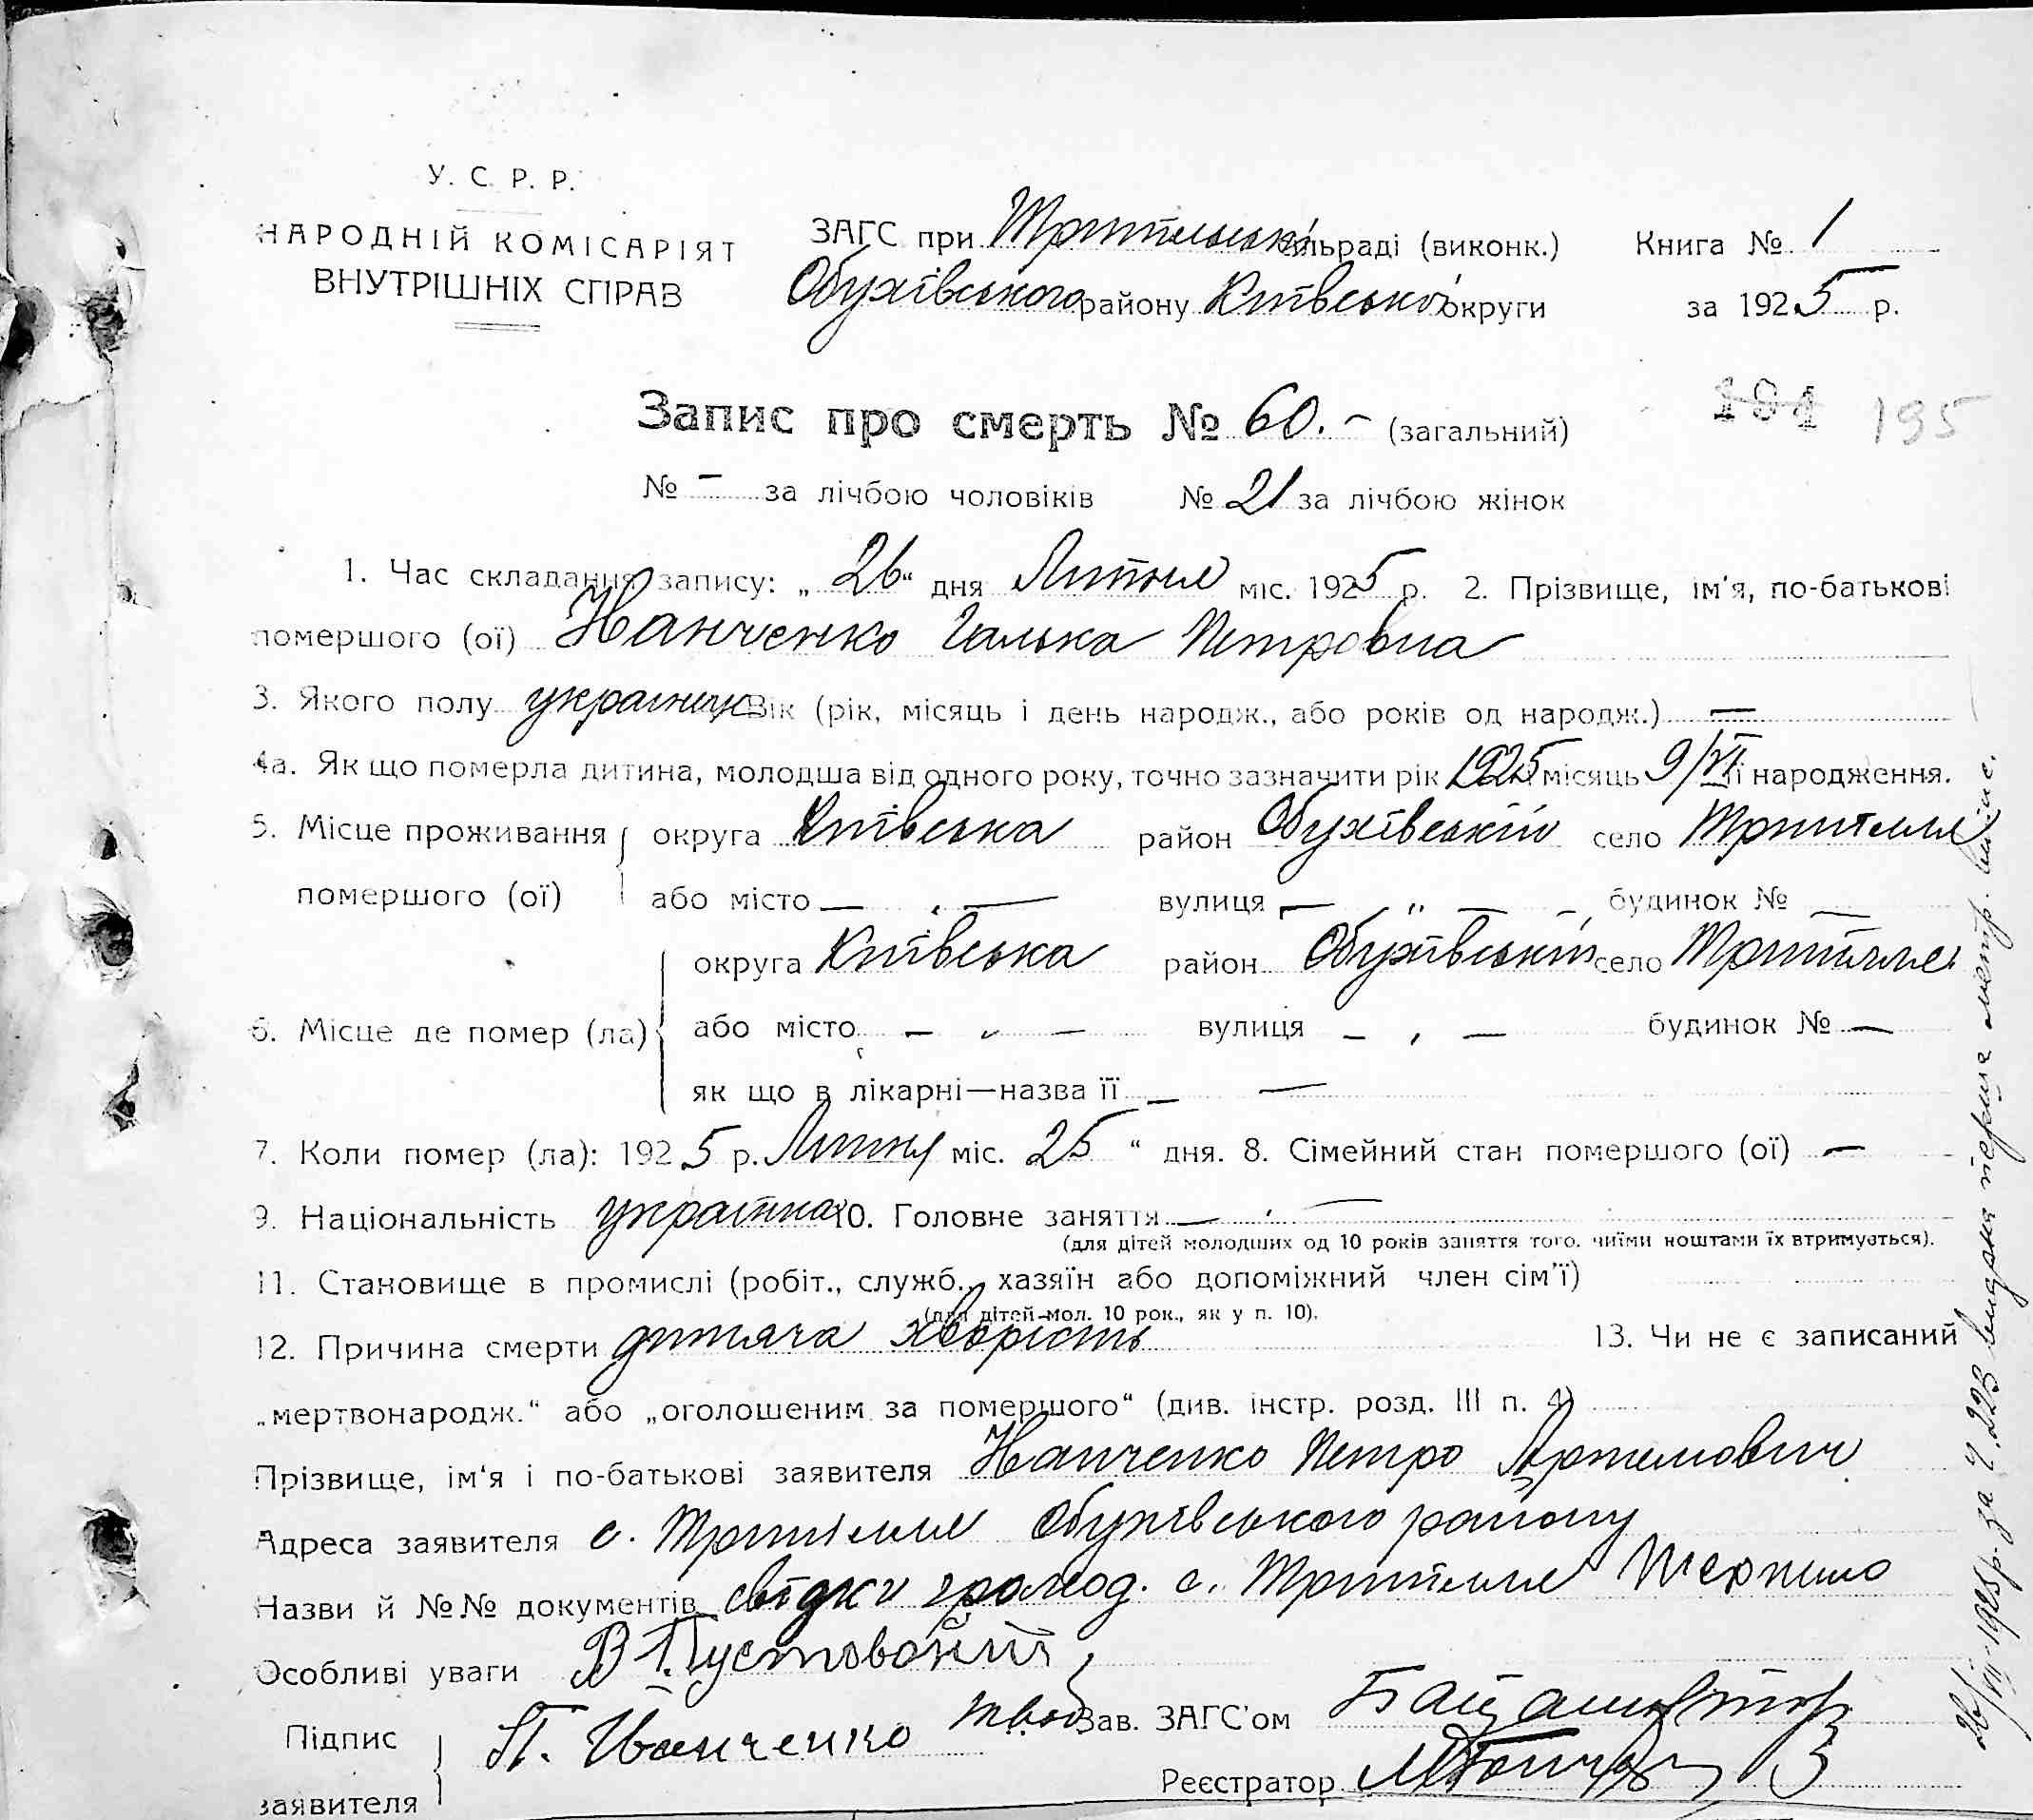 У. С. Р. Р.
НАРОДНІЙ КОМІСАРІЯТ
ВНУТРІШНІХ СПРАВ
ЗАГС при Трипільські сільраді (виконк.) Книга № 1
Обухівського району Київської округи за 1925 р.
Запис про смерть № 60. – (загальний) 191 195
№ – за лічбою чоловіків № 21 за лічбою жінок
1. Час складання запису: „ 26 “ дня Липня міс. 1925 р. 2. Прізвище, ім'я, по-батькові
помершого (ої) Иванченко Галька Петровна
3. Якого полу Вік (рік, місяць і день народж., або років од народж.) —
4а. Як що померла дитина, молодша від одного року, точно зазначити рік 1925 місяць 9/VI її народження.
5. Місце проживання округа Київська район Обухівський село Трипілля
помершого (ої) або місто — „ — вулиця — „ — будинок № —
округа Київська район Обухівський село Трипілля
6. Місце де помер (ла) або місто — „ — вулиця — „ — будинок № —
як що в лікарні—назва її — —
7. Коли помер (ла): 1925 р. Липня міс. 25 “ дня. 8. Сімейний стан помершого (ої) —
9. Національність українка 10. Головне заняття — „ —
(для дітей молодших од 10 років заняття того, чиїми коштами їх втримується).
11. Становище в промислі (робіт., служб., хазяїн або допоміжний член сім'ї)
(для дітей мол. 10 рок., як у п. 10).
12. Причина смерти дитяча хворість 13. Чи не є записаний
„мертвонародж.“ або „оголошеним за помершого“ (див. інстр. розд. III п. 4)
Прізвище, ім'я і по-батькові заявителя Иванченко Петро Артемович
Адреса заявителя с. Трипілля Обухівського району
Назви й №№ документів свідки громад. с. Трипілля
Особливі уваги В Пустовойтів
Підпис заявителя П. Иванченко Зав. ЗАГС'ом
Реєстратор
26/VII-1925 р. за Ч. 223 видана перша метр. випис.